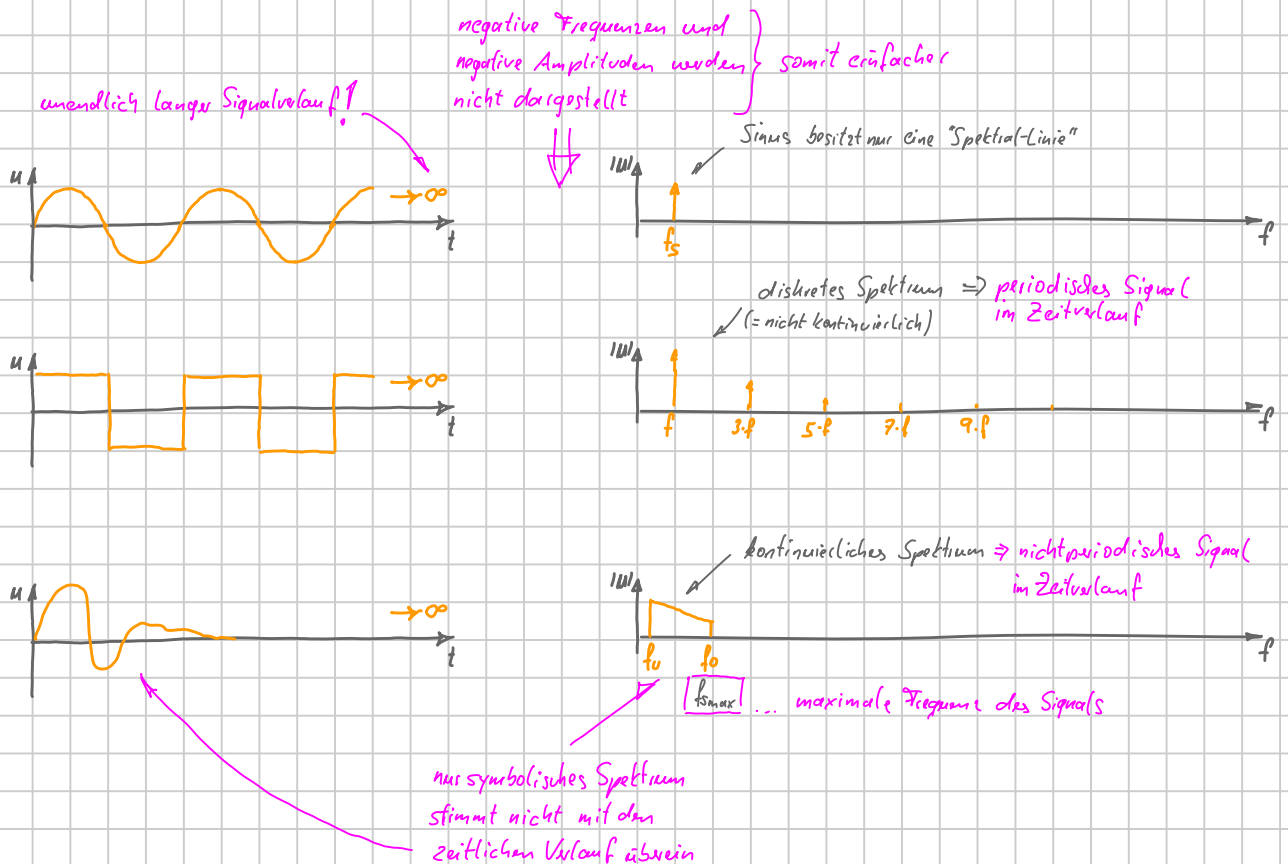 negative Frequenzen und
negative Amplituden werden
nicht dargestellt
somit einfacher
unendlich langer Signalverlauf!
Sinus besitzt nur eine "Spektral-Linie"
u
→∞
t
|U|
fs
f
diskretes Spektrum ⇒ periodisches Signal
(= nicht kontinuierlich) im Zeitverlauf
u
→∞
t
|U|
f 3·f 5·f 7·f 9·f
f
kontinuierliches Spektrum ⇒ nichtperiodisches Signal
im Zeitverlauf
u
→∞
t
|U|
fu fo
f
fsmax ... maximale Frequenz des Signals
nur symbolisches Spektrum
stimmt nicht mit den
zeitlichen Verlauf überein